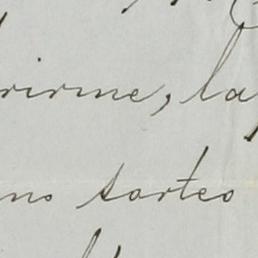 rirme, la
no sorteo